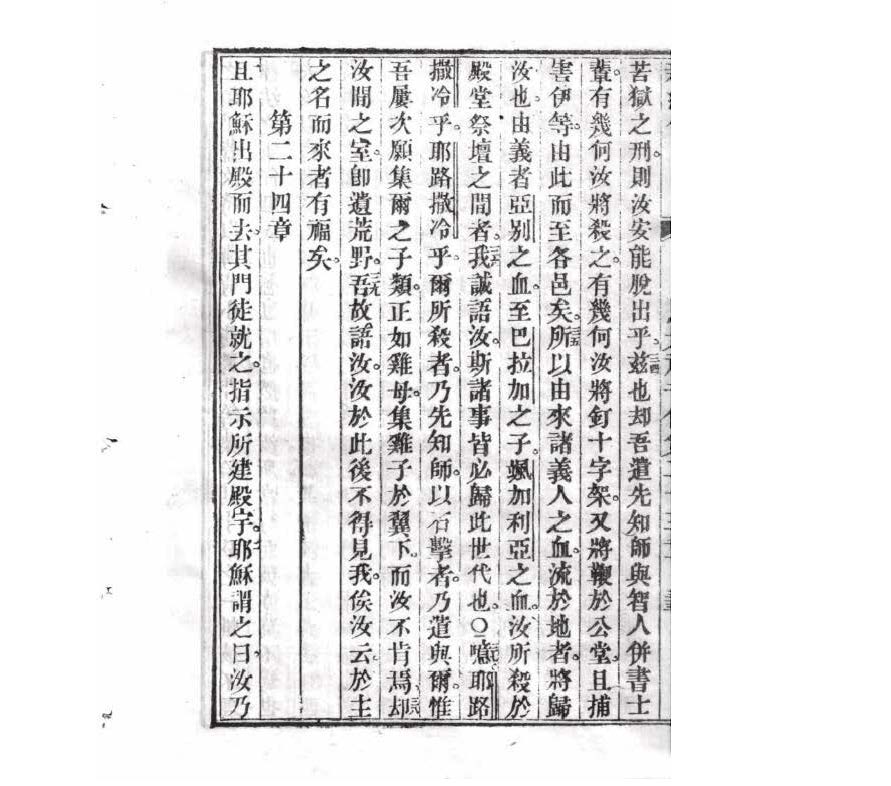 苦獄之刑。則汝安能脫出乎。三四茲也却吾遣先知師與智人併書士
輩。有幾何汝將殺之。有幾何汝將釘十字架。又將鞭於公堂。且捕
害伊等。由此而至各邑矣。三五所以由來諸義人之血。流於地者。將歸
汝也。由義者亞別之血。至巴拉加之子。颯加利亞之血。汝所殺於
殿堂祭壇之間者。三六我誠語汝。斯諸事皆必歸此世代也。○三七噫耶路
撒冷乎。耶路撒冷乎。爾所殺者。乃先知師。以石擊者。乃遣與爾。惟
吾屢次願集爾之子類。正如雞母。集雞子於翼下。而汝不肯焉。三八却
汝間之室。卽遺荒野。三九吾故語汝。汝於此後不得見我。俟汝云於主
之名而來者有福矣。
第二十四章
一且耶穌出殿而去。其門徒就之。指示所建殿宇。二耶穌謂之曰。汝乃